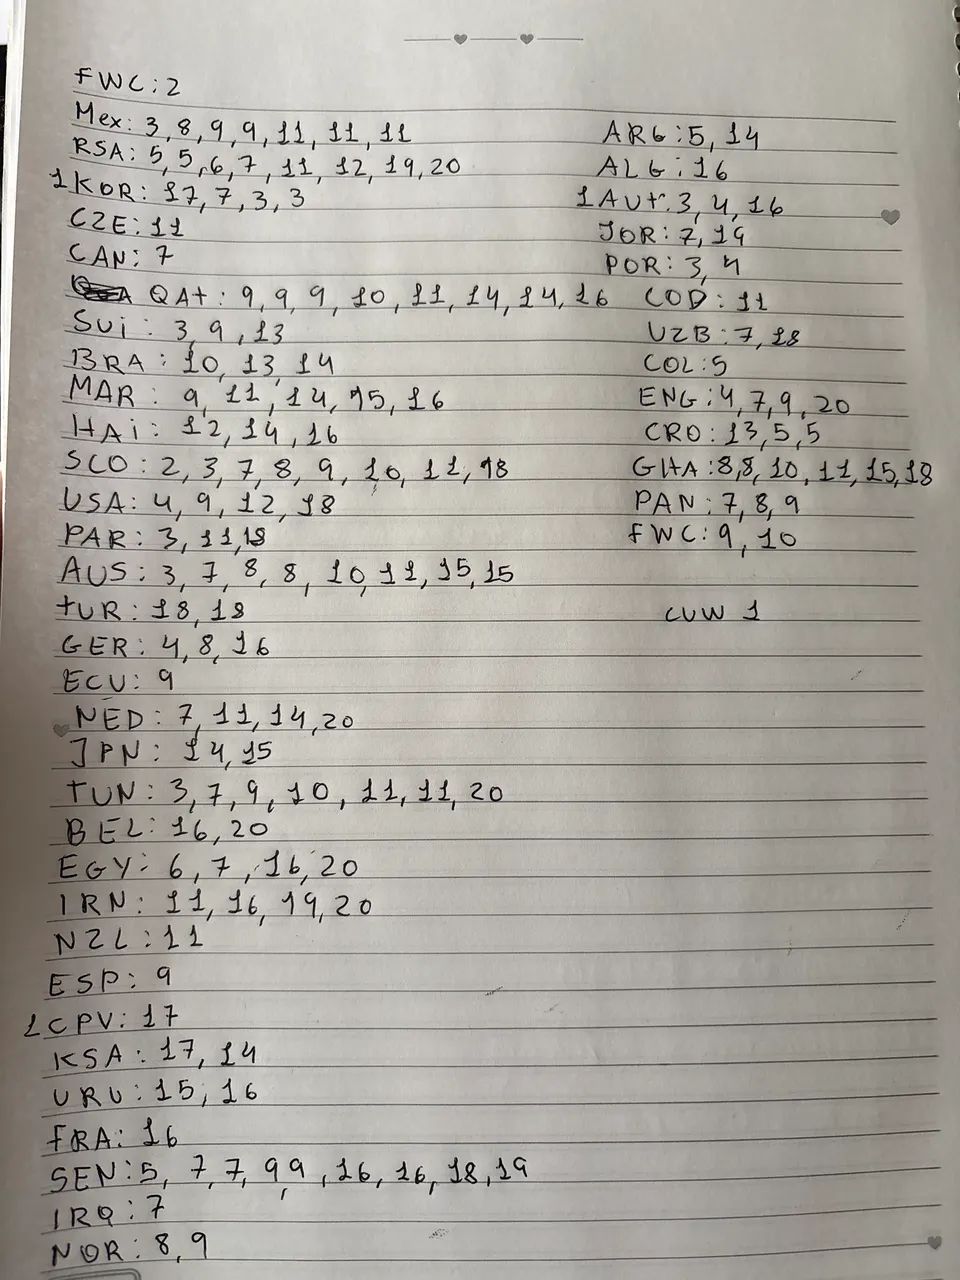 FWC: 2
Mex: 3, 8, 9, 9, 11, 11, 11
RSA: 5, 5, 6, 7, 11, 12, 19, 20
1 KOR: 17, 7, 3, 3
CZE: 11
CAN: 7
QAT: 9, 9, 9, 10, 11, 14, 14, 16
Sui: 3, 9, 13
BRA: 10, 13, 14
MAR: 9, 11, 14, 15, 16
HAi: 12, 14, 16
SCO: 2, 3, 7, 8, 9, 10, 11, 18
USA: 4, 9, 12, 18
PAR: 3, 11, 18
AUS: 3, 7, 8, 8, 10, 11, 15, 15
TUR: 18, 18
GER: 4, 8, 16
ECU: 9
NED: 7, 11, 14, 20
JPN: 14, 15
TUN: 3, 7, 9, 10, 11, 11, 20
BEL: 16, 20
EGY: 6, 7, 16, 20
IRN: 11, 16, 19, 20
NZL: 11
ESP: 9
1 CPV: 17
KSA: 17, 14
URU: 15, 16
FRA: 16
SEN: 5, 7, 7, 9, 9, 16, 16, 18, 19
IRQ: 7
NOR: 8, 9
ARG: 5, 14
ALG: 16
1 AUT: 3, 4, 16
JOR: 7, 19
POR: 3, 4
COD: 11
UZB: 7, 18
COL: 5
ENG: 4, 7, 9, 20
CRO: 13, 5, 5
GHA: 8, 8, 10, 11, 15, 18
PAN: 7, 8, 9
FWC: 9, 10
CUW 1